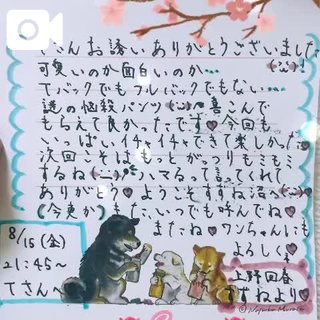 さんお誘いありがとうございました
可愛いのか面白いのか…(˙꒳˙)!
Tバックでもフルバックでもない…
謎の悩殺パンツ(˙꒳˙)喜こんで
もらえて良かったです♥今回も
いっぱいイチャイチャできて楽しかった
次回こそはもっとがっつりモミモミ
するね(ー̀ー́)ハマるって言ってくれて
ありがとう♥ようこそすずね沼へ(˙꒳˙)♥
(今更か)また、いつでも呼んでね♥
またね♥ワンちゃんにも
よろしくね
8/15(金)
21:45〜
Tさんへ
上野回春
すずねより♥